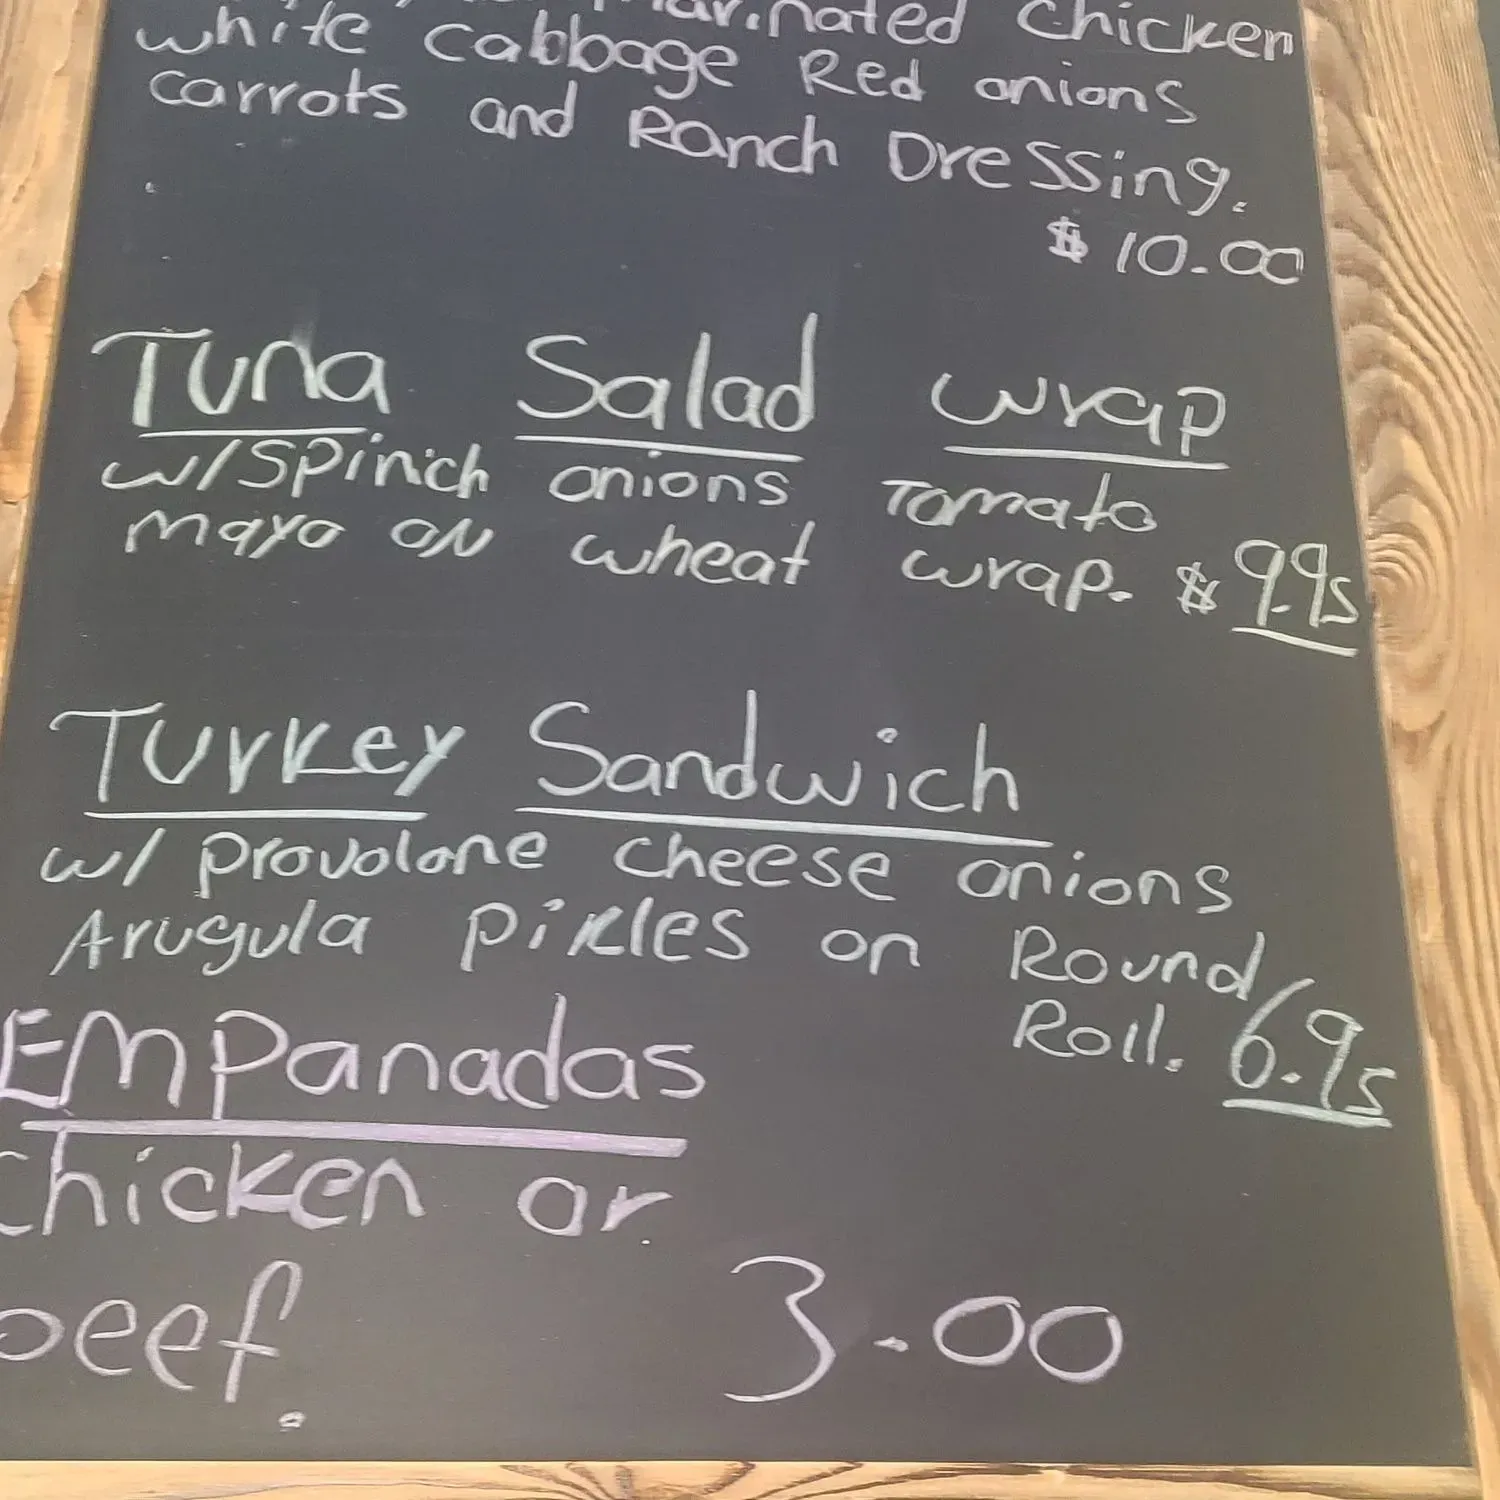 marinated chicken
white cabbage Red onions
carrots and Ranch Dressing.
$ 10.00
Tuna Salad wrap
w/ Spinich onions Tomato
mayo on wheat wrap. $ 9.95
Turkey Sandwich
w/ provolone cheese onions
Arugula pikles on Round
Roll. 6.95
EMPanadas
chicken or
beef.
3.00